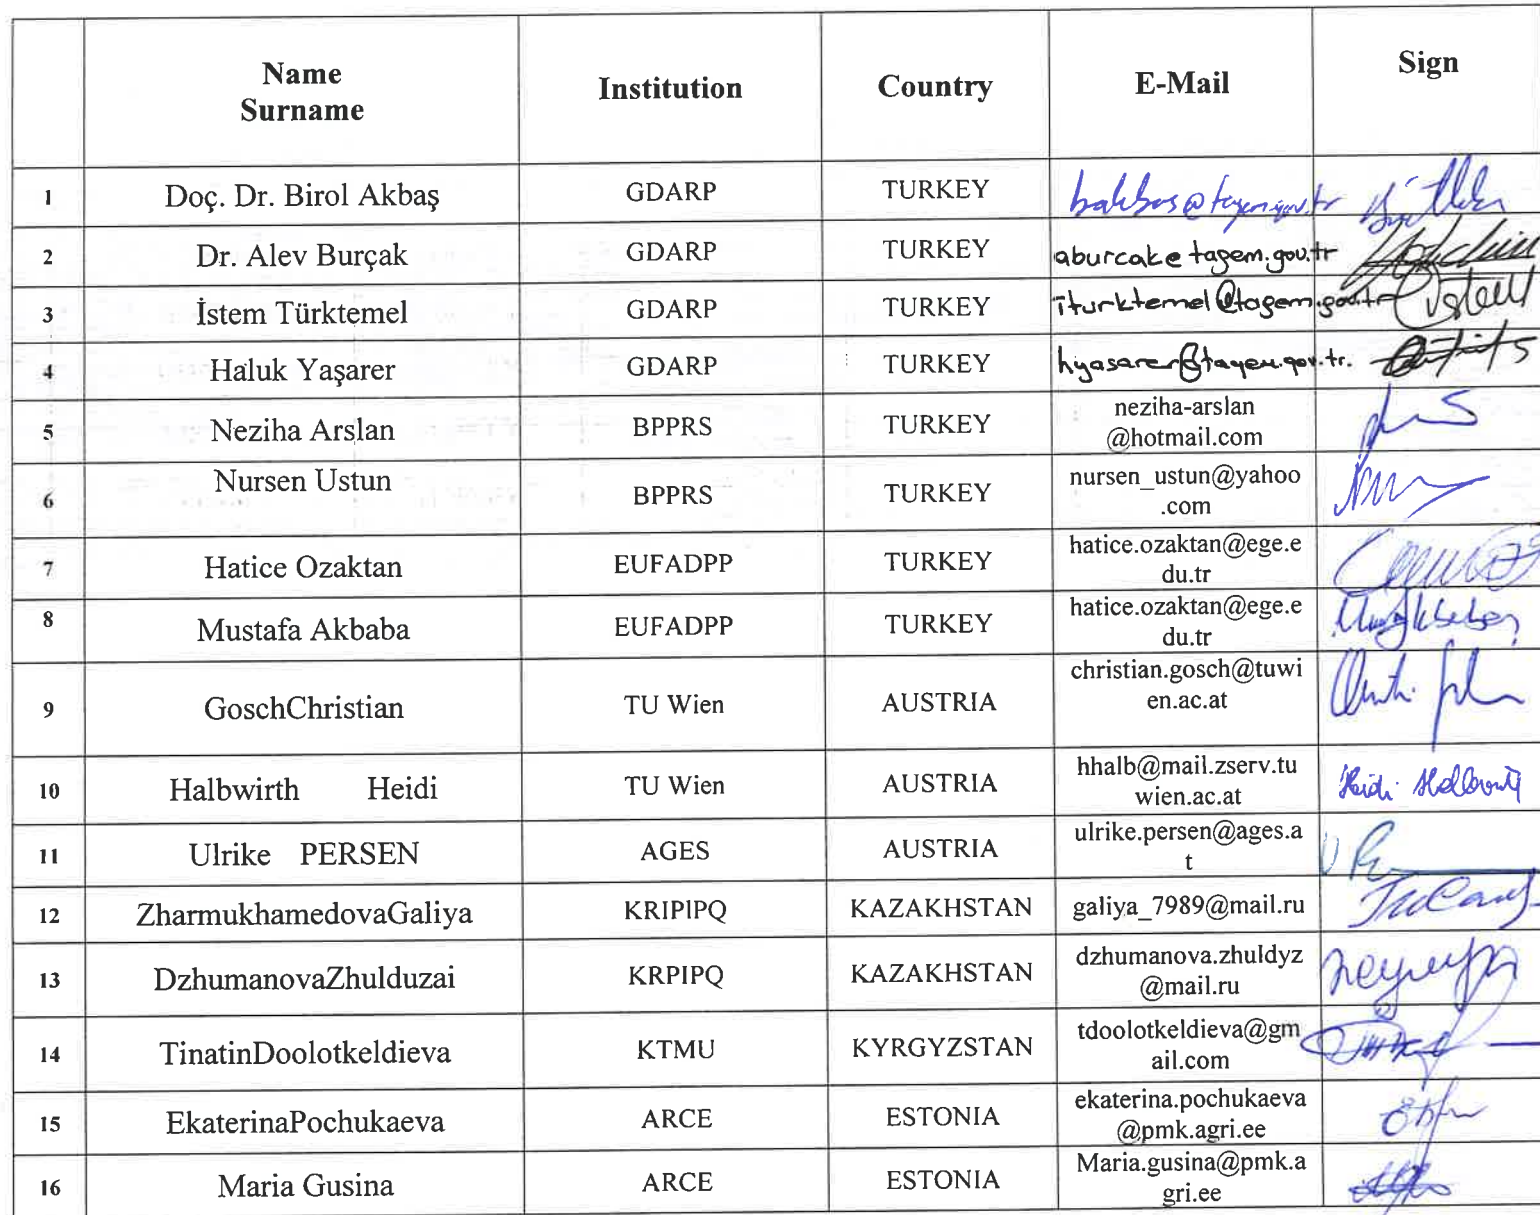 Name Surname Institution Country E-Mail Sign
1 Doç. Dr. Birol Akbaş GDARP TURKEY bakbas@tagem.gov.tr
2 Dr. Alev Burçak GDARP TURKEY aburcak@tagem.gov.tr
3 İstem Türktemel GDARP TURKEY iturktemel@tagem.gov.tr
4 Haluk Yaşarer GDARP TURKEY hyasarer@tagem.gov.tr.
5 Neziha Arslan BPPRS TURKEY neziha-arslan
@hotmail.com
6 Nursen Ustun BPPRS TURKEY nursen_ustun@yahoo
.com
7 Hatice Ozaktan EUFADPP TURKEY hatice.ozaktan@ege.e
du.tr
8 Mustafa Akbaba EUFADPP TURKEY hatice.ozaktan@ege.e
du.tr
9 GoschChristian TU Wien AUSTRIA christian.gosch@tuwi
en.ac.at
10 Halbwirth Heidi TU Wien AUSTRIA hhalb@mail.zserv.tu
wien.ac.at Heidi Halbwirth
11 Ulrike PERSEN AGES AUSTRIA ulrike.persen@ages.a
t
12 ZharmukhamedovaGaliya KRIPIPQ KAZAKHSTAN galiya_7989@mail.ru
13 DzhumanovaZhulduzai KRPIPQ KAZAKHSTAN dzhumanova.zhuldyz
@mail.ru
14 TinatinDoolotkeldieva KTMU KYRGYZSTAN tdoolotkeldieva@gm
ail.com
15 EkaterinaPochukaeva ARCE ESTONIA ekaterina.pochukaeva
@pmk.agri.ee
16 Maria Gusina ARCE ESTONIA Maria.gusina@pmk.a
gri.ee